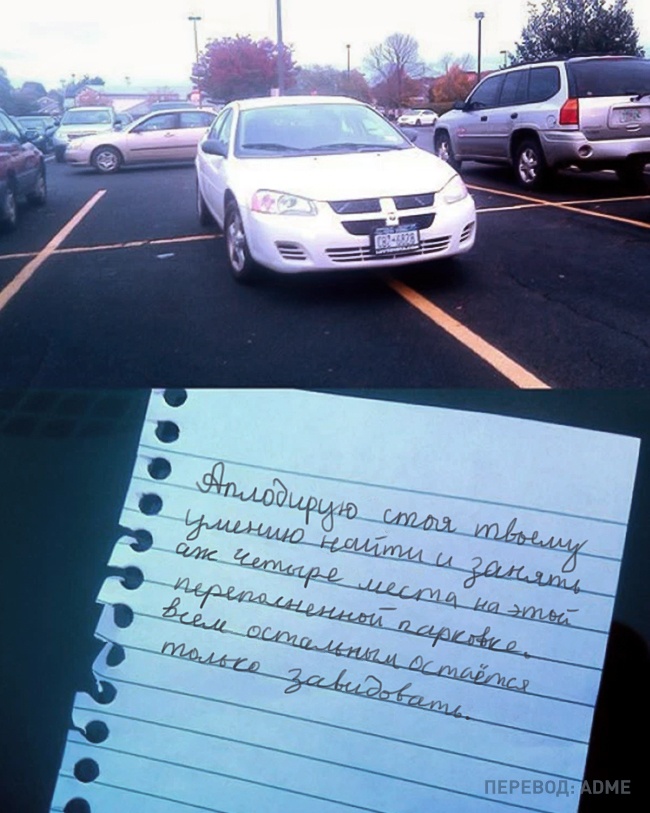 Аплодирую стоя твоему
умению найти и занять
аж четыре места на этой
переполненной парковке.
Всем остальным остаётся
только завидовать.
ПЕРЕВОД: ADME